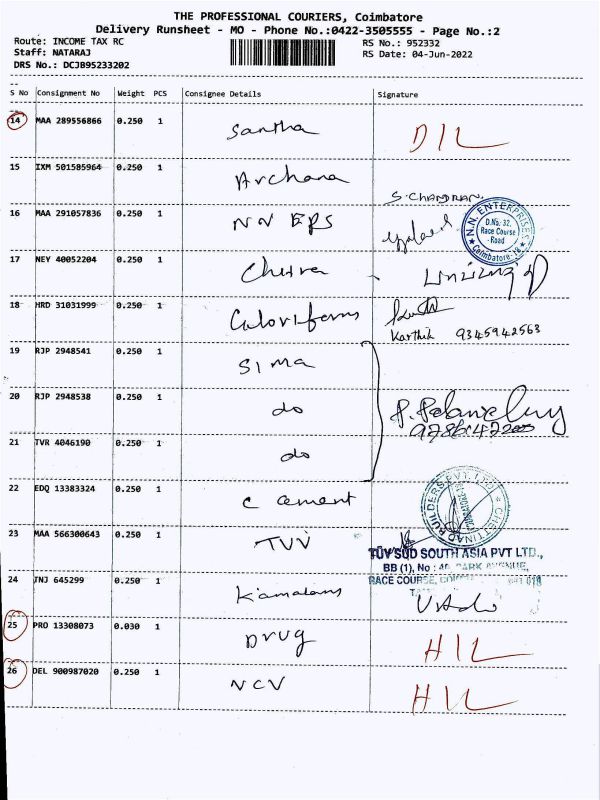 THE PROFESSIONAL COURIERS, Coimbatore
Delivery Runsheet - MO - Phone No.:0422-3505555 - Page No.:2
Route: INCOME TAX RC RS No.: 952332
Staff: NATARAJ RS Date: 04-Jun-2022
DRS No.: DCJB95233202
S No Consignment No Weight PCS Consignee Details Signature
14 MAA 289556866 0.250 1 Santha DIL
15 IXM 501585964 0.250 1 Archana
S. CHANDRAN
16 MAA 291057836 0.250 1 NN EPS
N.N. ENTERPRISES
D.No: 32,
Race Course
Road
Coimbatore-18
17 NEY 40052204 0.250 1
18 HRD 31031999 0.250 1
Karthik 9345942563
19 RJP 2948541 0.250 1 Sima
20 RJP 2948538 0.250 1 do
21 TVR 4046190 0.250 1 do
22 EDQ 13383324 0.250 1 C cement
CHETTINAD BUILDERS PVT. LTD
23 MAA 566300643 0.250 1 TUV
TÜV SÜD SOUTH ASIA PVT LTD.,
BB (1), No : 40, PARK AVENUE,
RACE COURSE,
24 JNJ 645299 0.250 1
25 PRO 13308073 0.030 1 Drug HIL
26 DEL 900987020 0.250 1 NCV HIL